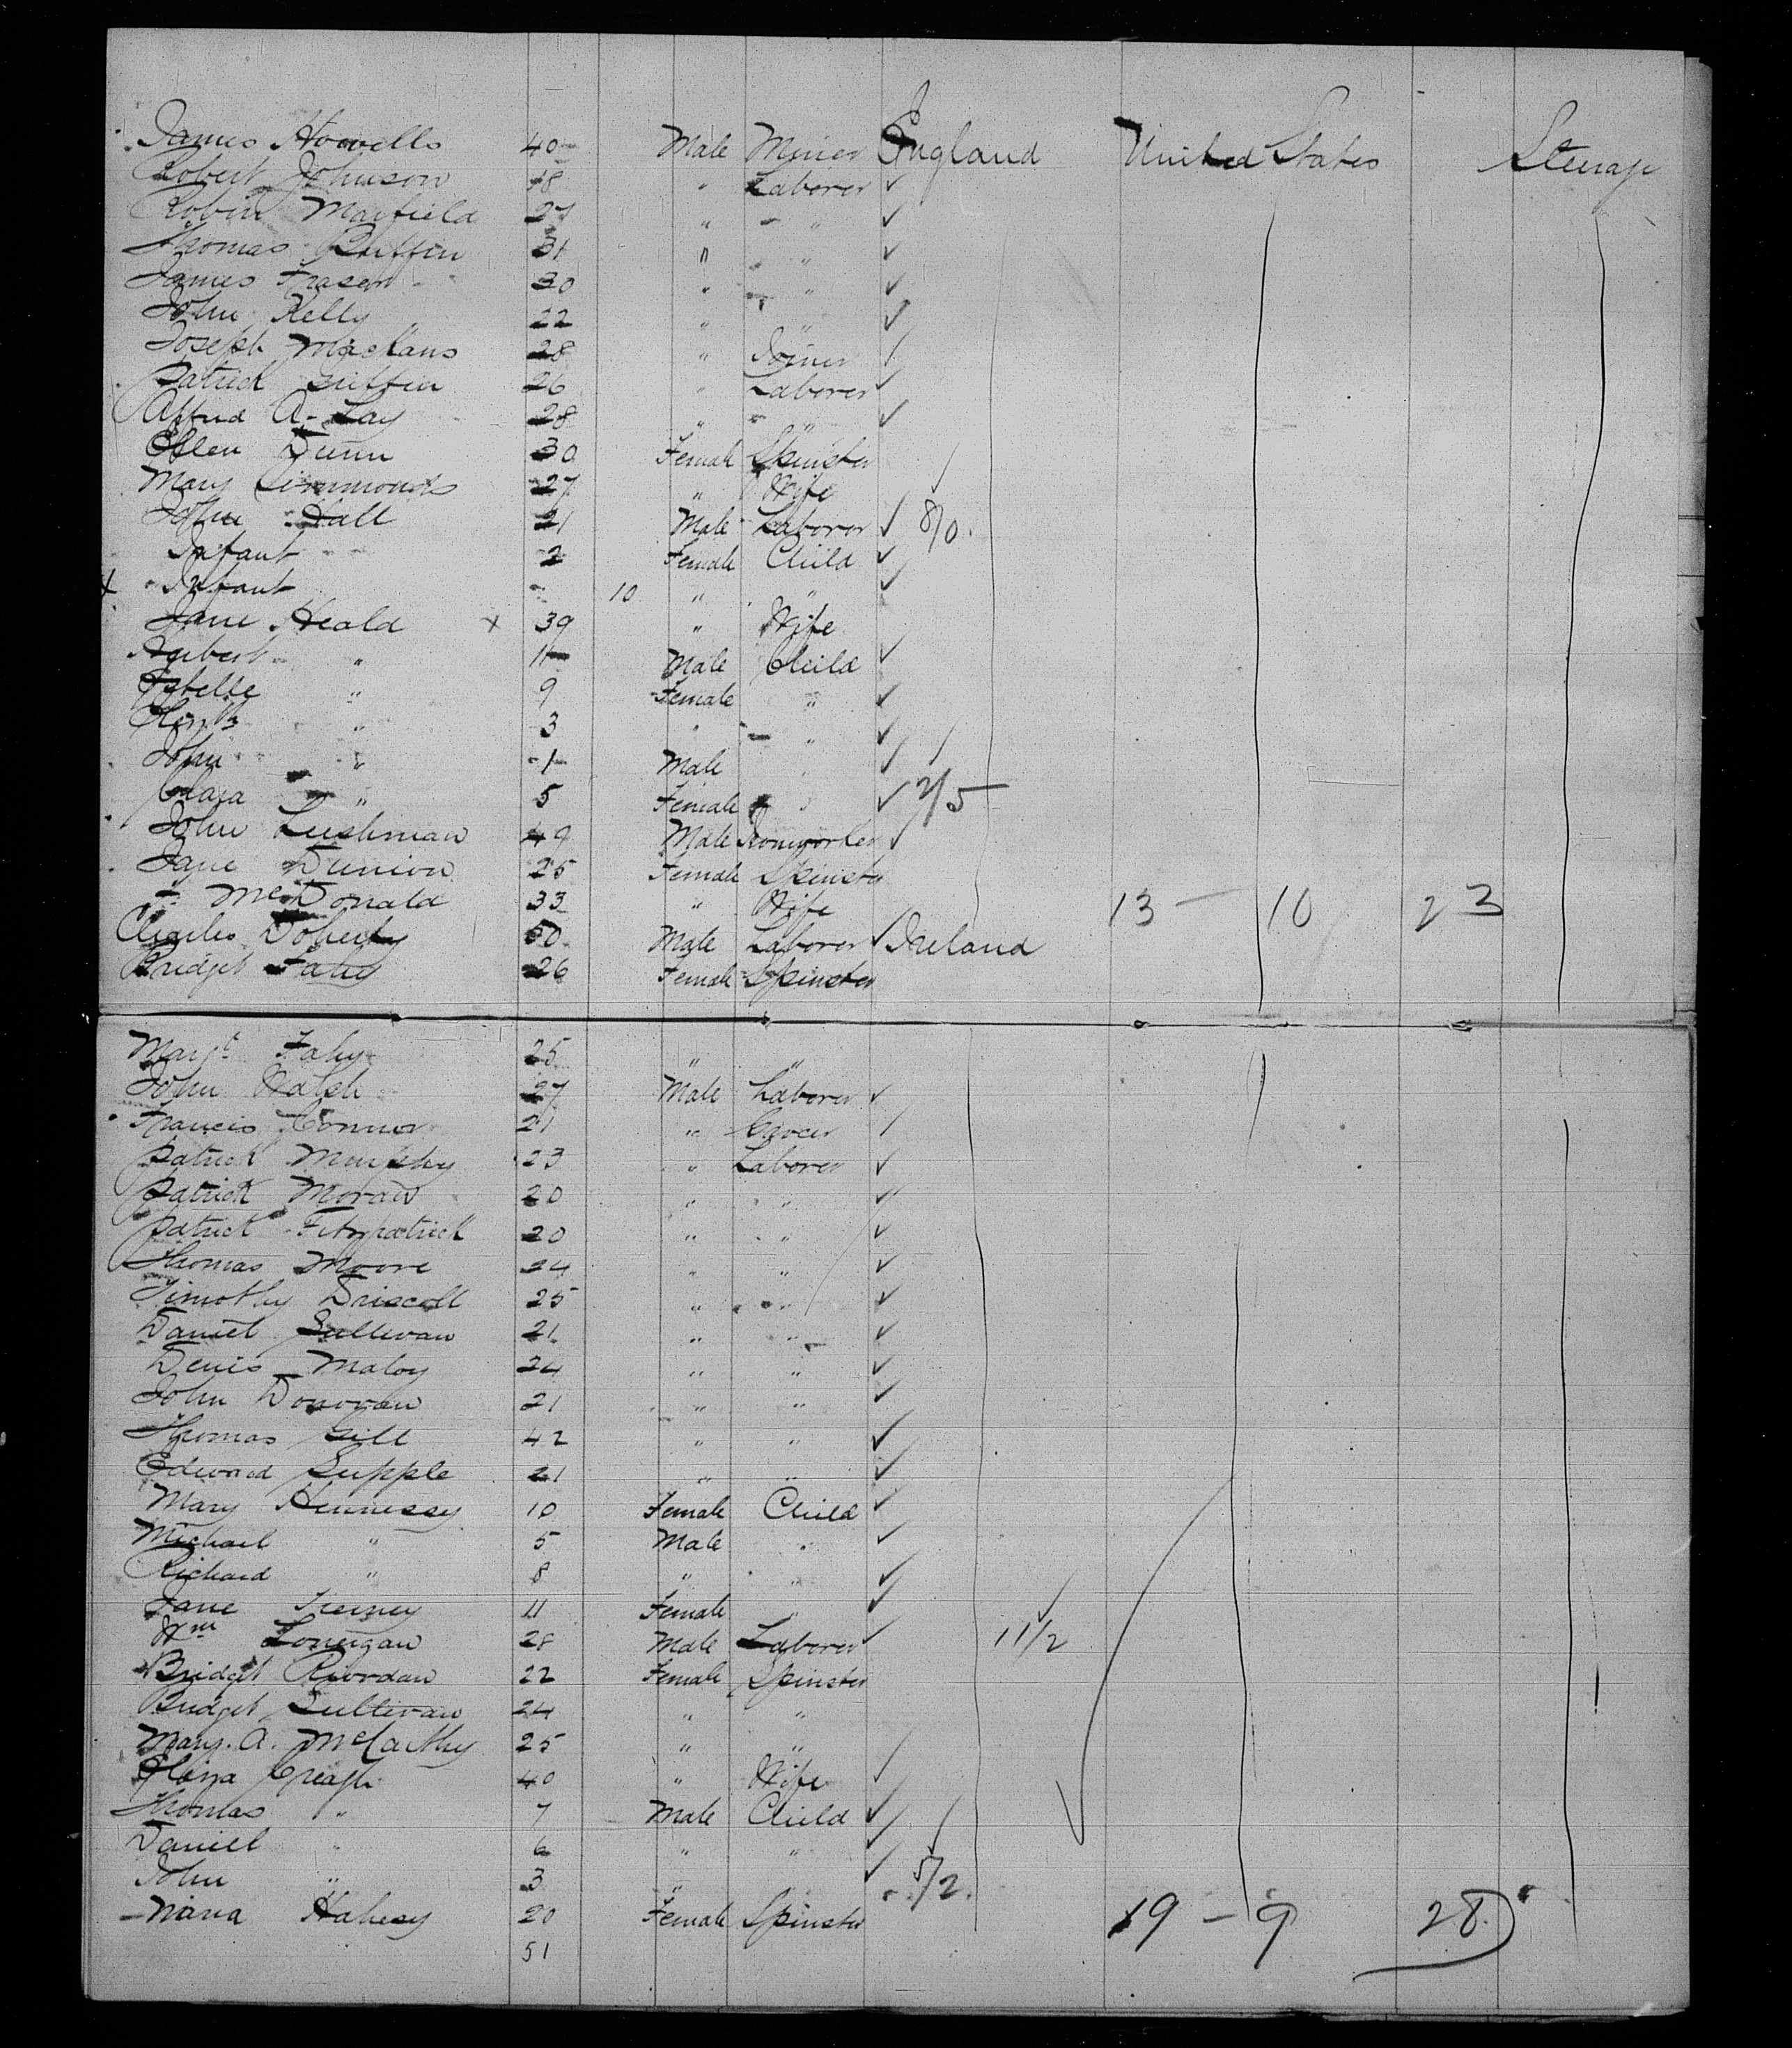 James Howells 40 Male Miner England United States Steerage
Robert Johnson 18 " Laborer ✓
Robin Mayfield 27 " " ✓
Thomas Ruffin 31 " " ✓
James Fraser 30 " " ✓
John Kelly 22 " " ✓
Joseph 28 " Joiner
Patrick Griffin 26 " Laborer ✓
Alfred A. Lay 28 " " ✓
Ellen Dunn 30 Female Spinster
Mary Simmonds 27 " Wife
John Hall 21 Male Laborer ✓ 8/0.
Infant 2 Female Child ✓
x Infant - 10 " " ✓
Jane Heald x 39 " Wife
Herbert " 11 Male Child ✓
" 9 Female " ✓
" 3 " " ✓
John " 1 Male " ✓
Clara " 5 Female " ✓ 2/5
John Lushman 49 Male Ironworker ✓
Jane Dunion 25 Female Spinster
" McDonald 33 " Wife 13 - 10 23
Charles Doherty 50 Male Laborer ✓ Ireland
Bridget Fahy 26 Female Spinster
Margt Fahy 25 " "
John Walsh 27 Male Laborer ✓
Francis Connor 21 " Grocer
Patrick Murphy 23 " Laborer ✓
Patrick Moran 20 " " ✓
Patrick Fitzpatrick 20 " " ✓
Thomas Moore 24 " " ✓
Timothy Driscoll 25 " " ✓
Daniel Sullivan 21 " " ✓
Denis Maloy 24 " " ✓
John Donovan 21 " " ✓
Thomas Gill 42 " " ✓
Edward Supple 21 " " ✓
Mary Hennessy 10 Female Child ✓
Michael " 5 Male " ✓
Richard " 8 " " ✓
Jane Tierney 11 Female " ✓
Wm Lonergan 28 Male Laborer ✓ 11/2
Bridget Riordan 22 Female Spinster
Bridget Sullivan 24 " "
Mary. A. McCarthy 25 " "
Eliza Creagh 40 " Wife
Thomas " 7 Male Child ✓
Daniel " 6 " " ✓
John " 3 " ✓ 5/2.
Maria Hahesy 20 Female Spinster 19 - 9 28
51